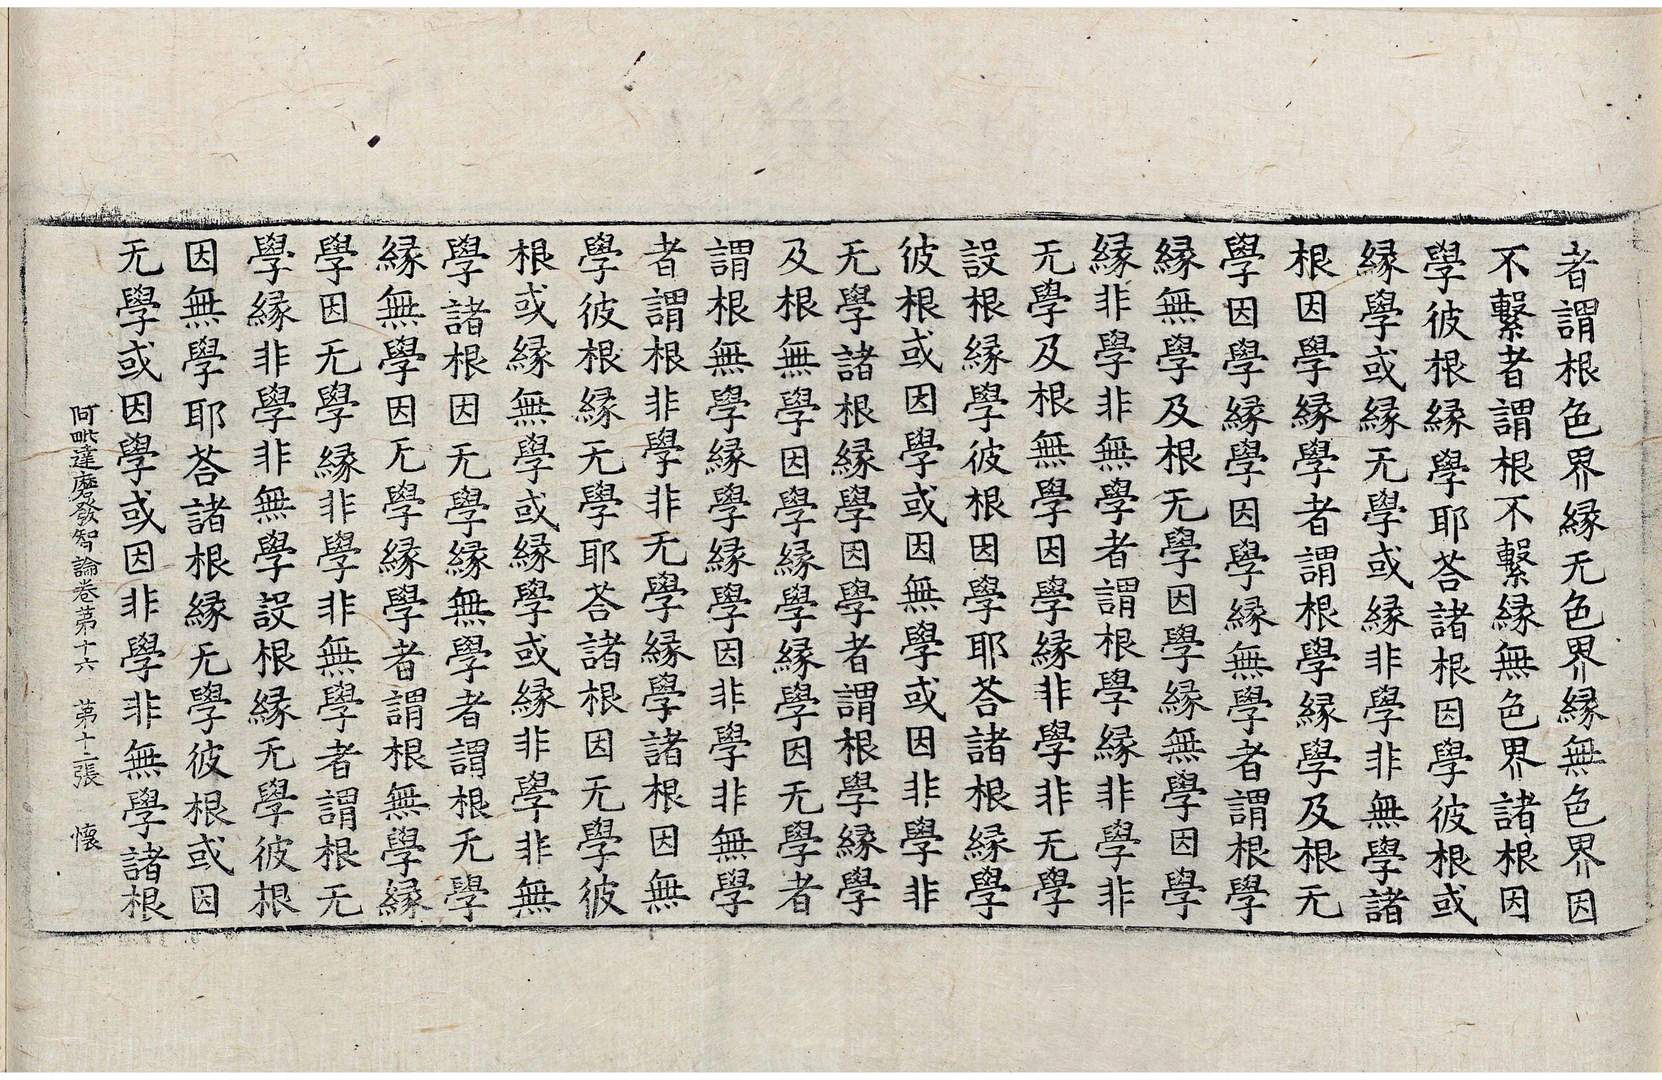 者謂根色界縁无色界縁無色界因
不繫者謂根不繫縁無色界諸根因
學彼根縁學耶荅諸根因學彼根或
縁學或縁无學或縁非學非無學諸
根因學縁學者謂根學縁學及根无
學因學縁學因學縁無學者謂根學
縁無學及根无學因學縁無學因學
縁非學非無學者謂根學縁非學非
无學及根無學因學縁非學非无學
設根縁學彼根因學耶荅諸根縁學
彼根或因學或因無學或因非學非
无學諸根縁學因學者謂根學縁學
及根無學因學縁學縁學因无學者
謂根無學縁學縁學因非學非無學
者謂根非學非无學縁學諸根因無
學彼根縁无學耶荅諸根因无學彼
根或縁無學或縁學或縁非學非無
學諸根因无學縁無學者謂根无學
縁無學因无學縁學者謂根無學縁
學因无學縁非學非無學者謂根无
學縁非學非無學設根縁无學彼根
因無學耶荅諸根縁无學彼根或因
无學或因學或因非學非無學諸根
阿毗達磨發智論卷苐十六　苐十二張　懷